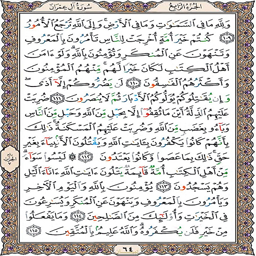 سُورَةُ آلِ عِمْرَان الجُزْءُ الرَّابِعُ
وَلِلَّهِ مَا فِي السَّمَاوَاتِ وَمَا فِي الْأَرْضِ وَإِلَى اللَّهِ تُرْجَعُ الْأُمُورُ
١٠٩ كُنْتُمْ خَيْرَ أُمَّةٍ أُخْرِجَتْ لِلنَّاسِ تَأْمُرُونَ بِالْمَعْرُوفِ
وَتَنْهَوْنَ عَنِ الْمُنْكَرِ وَتُؤْمِنُونَ بِاللَّهِ وَلَوْ آمَنَ
أَهْلُ الْكِتَابِ لَكَانَ خَيْرًا لَهُمْ مِنْهُمُ الْمُؤْمِنُونَ
وَأَكْثَرُهُمُ الْفَاسِقُونَ ١١٠ لَنْ يَضُرُّوكُمْ إِلَّا أَذًى
وَإِنْ يُقَاتِلُوكُمْ يُوَلُّوكُمُ الْأَدْبَارَ ثُمَّ لَا يُنْصَرُونَ ١١١ ضُرِبَتْ
عَلَيْهِمُ الذِّلَّةُ أَيْنَ مَا ثُقِفُوا إِلَّا بِحَبْلٍ مِنَ اللَّهِ وَحَبْلٍ مِنَ النَّاسِ
وَبَاءُوا بِغَضَبٍ مِنَ اللَّهِ وَضُرِبَتْ عَلَيْهِمُ الْمَسْكَنَةُ ذَلِكَ
بِأَنَّهُمْ كَانُوا يَكْفُرُونَ بِآيَاتِ اللَّهِ وَيَقْتُلُونَ الْأَنْبِيَاءَ بِغَيْرِ
حَقٍّ ذَلِكَ بِمَا عَصَوْا وَكَانُوا يَعْتَدُونَ ١١٢ لَيْسُوا سَوَاءً
مِنْ أَهْلِ الْكِتَابِ أُمَّةٌ قَائِمَةٌ يَتْلُونَ آيَاتِ اللَّهِ آنَاءَ اللَّيْلِ
وَهُمْ يَسْجُدُونَ ١١٣ يُؤْمِنُونَ بِاللَّهِ وَالْيَوْمِ الْآخِرِ
وَيَأْمُرُونَ بِالْمَعْرُوفِ وَيَنْهَوْنَ عَنِ الْمُنْكَرِ وَيُسَارِعُونَ
فِي الْخَيْرَاتِ وَأُولَئِكَ مِنَ الصَّالِحِينَ ١١٤ وَمَا يَفْعَلُوا
مِنْ خَيْرٍ فَلَنْ يُكْفَرُوهُ وَاللَّهُ عَلِيمٌ بِالْمُتَّقِينَ ١١٥
٦٤